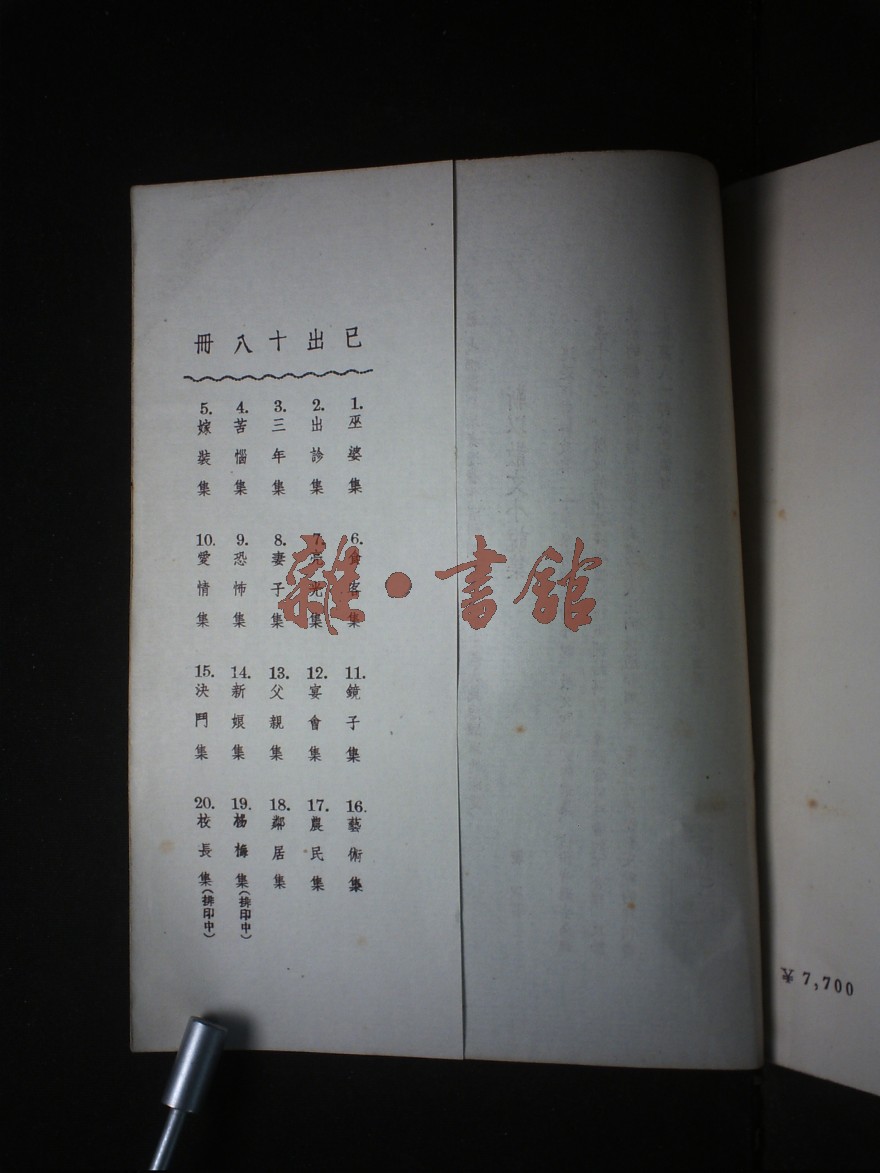 已出十八冊
1.巫婆集
2.出診集
3.三年集
4.苦惱集
5.嫁裝集
6.食客集
7.亮光集
8.妻子集
9.恐怖集
10.愛情集
11.鏡子集
12.宴會集
13.父親集
14.新娘集
15.決鬥集
16.藝術集
17.農民集
18.鄰居集
19.楊梅集(排印中)
20.校長集(排印中)
雜·書館
7,700